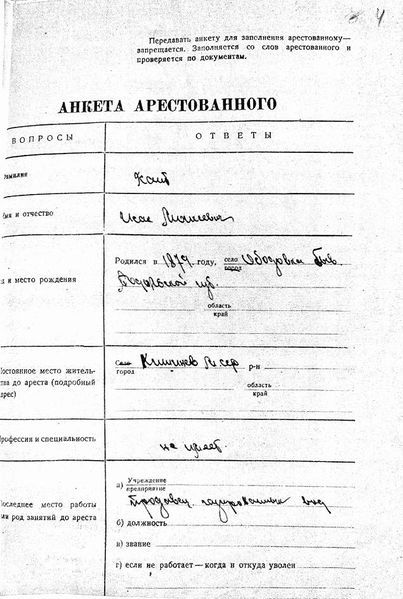 4
Передавать анкету для заполнения арестованному—
запрещается. Заполняется со слов арестованного и
проверяется по документам.
АНКЕТА АРЕСТОВАННОГО
ВОПРОСЫ ОТВЕТЫ
амилия
мя и отчество
Исак
Родился в 1879 году, село Ободовка быв.
город
а и место рождения
Подольской губ.
область
край
Постоянное место житель-
тва до ареста (подробный
дрес)
Село Кишинев р-н
город
область
край
Профессия и специальность
не имеет
Последнее место работы
ли род занятий до ареста
а) Учреждение
предприятие
Продавец газированных вод
б) должность
в) звание
г) если не работает—когда и откуда уволен